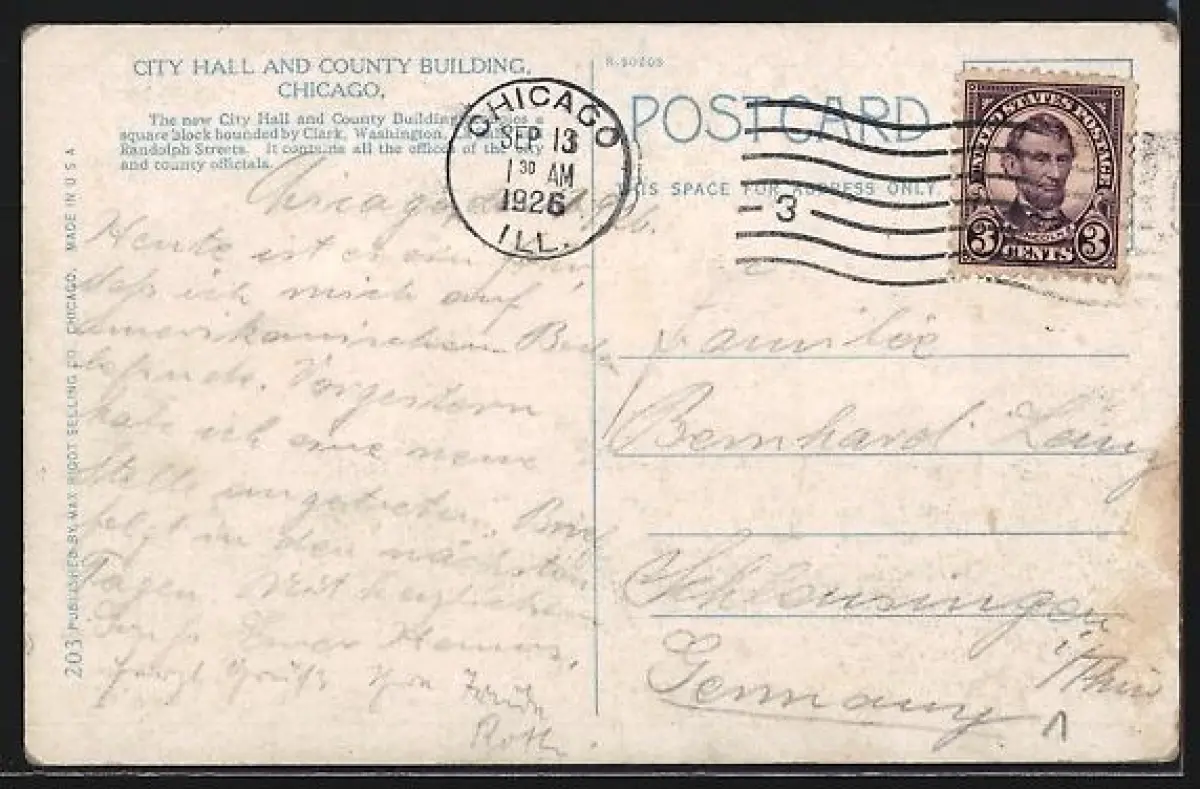 CITY HALL AND COUNTY BUILDING,
CHICAGO,
The new City Hall and County Building a
square block bounded by Clark, Washington,
Randolph Streets. It contains all the offices of the City
and county officials.
R-50605
POSTCARD
THIS SPACE FOR ADDRESS ONLY
CHICAGO
SEP 13
1 30 AM
1926
ILL.
3
UNITED STATES POSTAGE
LINCOLN
3 CENTS 3
203 PUBLISHED BY MAX RIGOT SELLING CO. CHICAGO. MADE IN U S A
Chicago
Heute ist es ein
daß ich mich auf
amerikanischem
befinde. Vorgestern
habe ich eine neue
Stelle angetreten. Brief
folgt in den nächsten
Tagen. Mit herzlichem
Gruß Euer
Roth.
Familie
Bernhard
Schleusingen
i/Thür
Germany